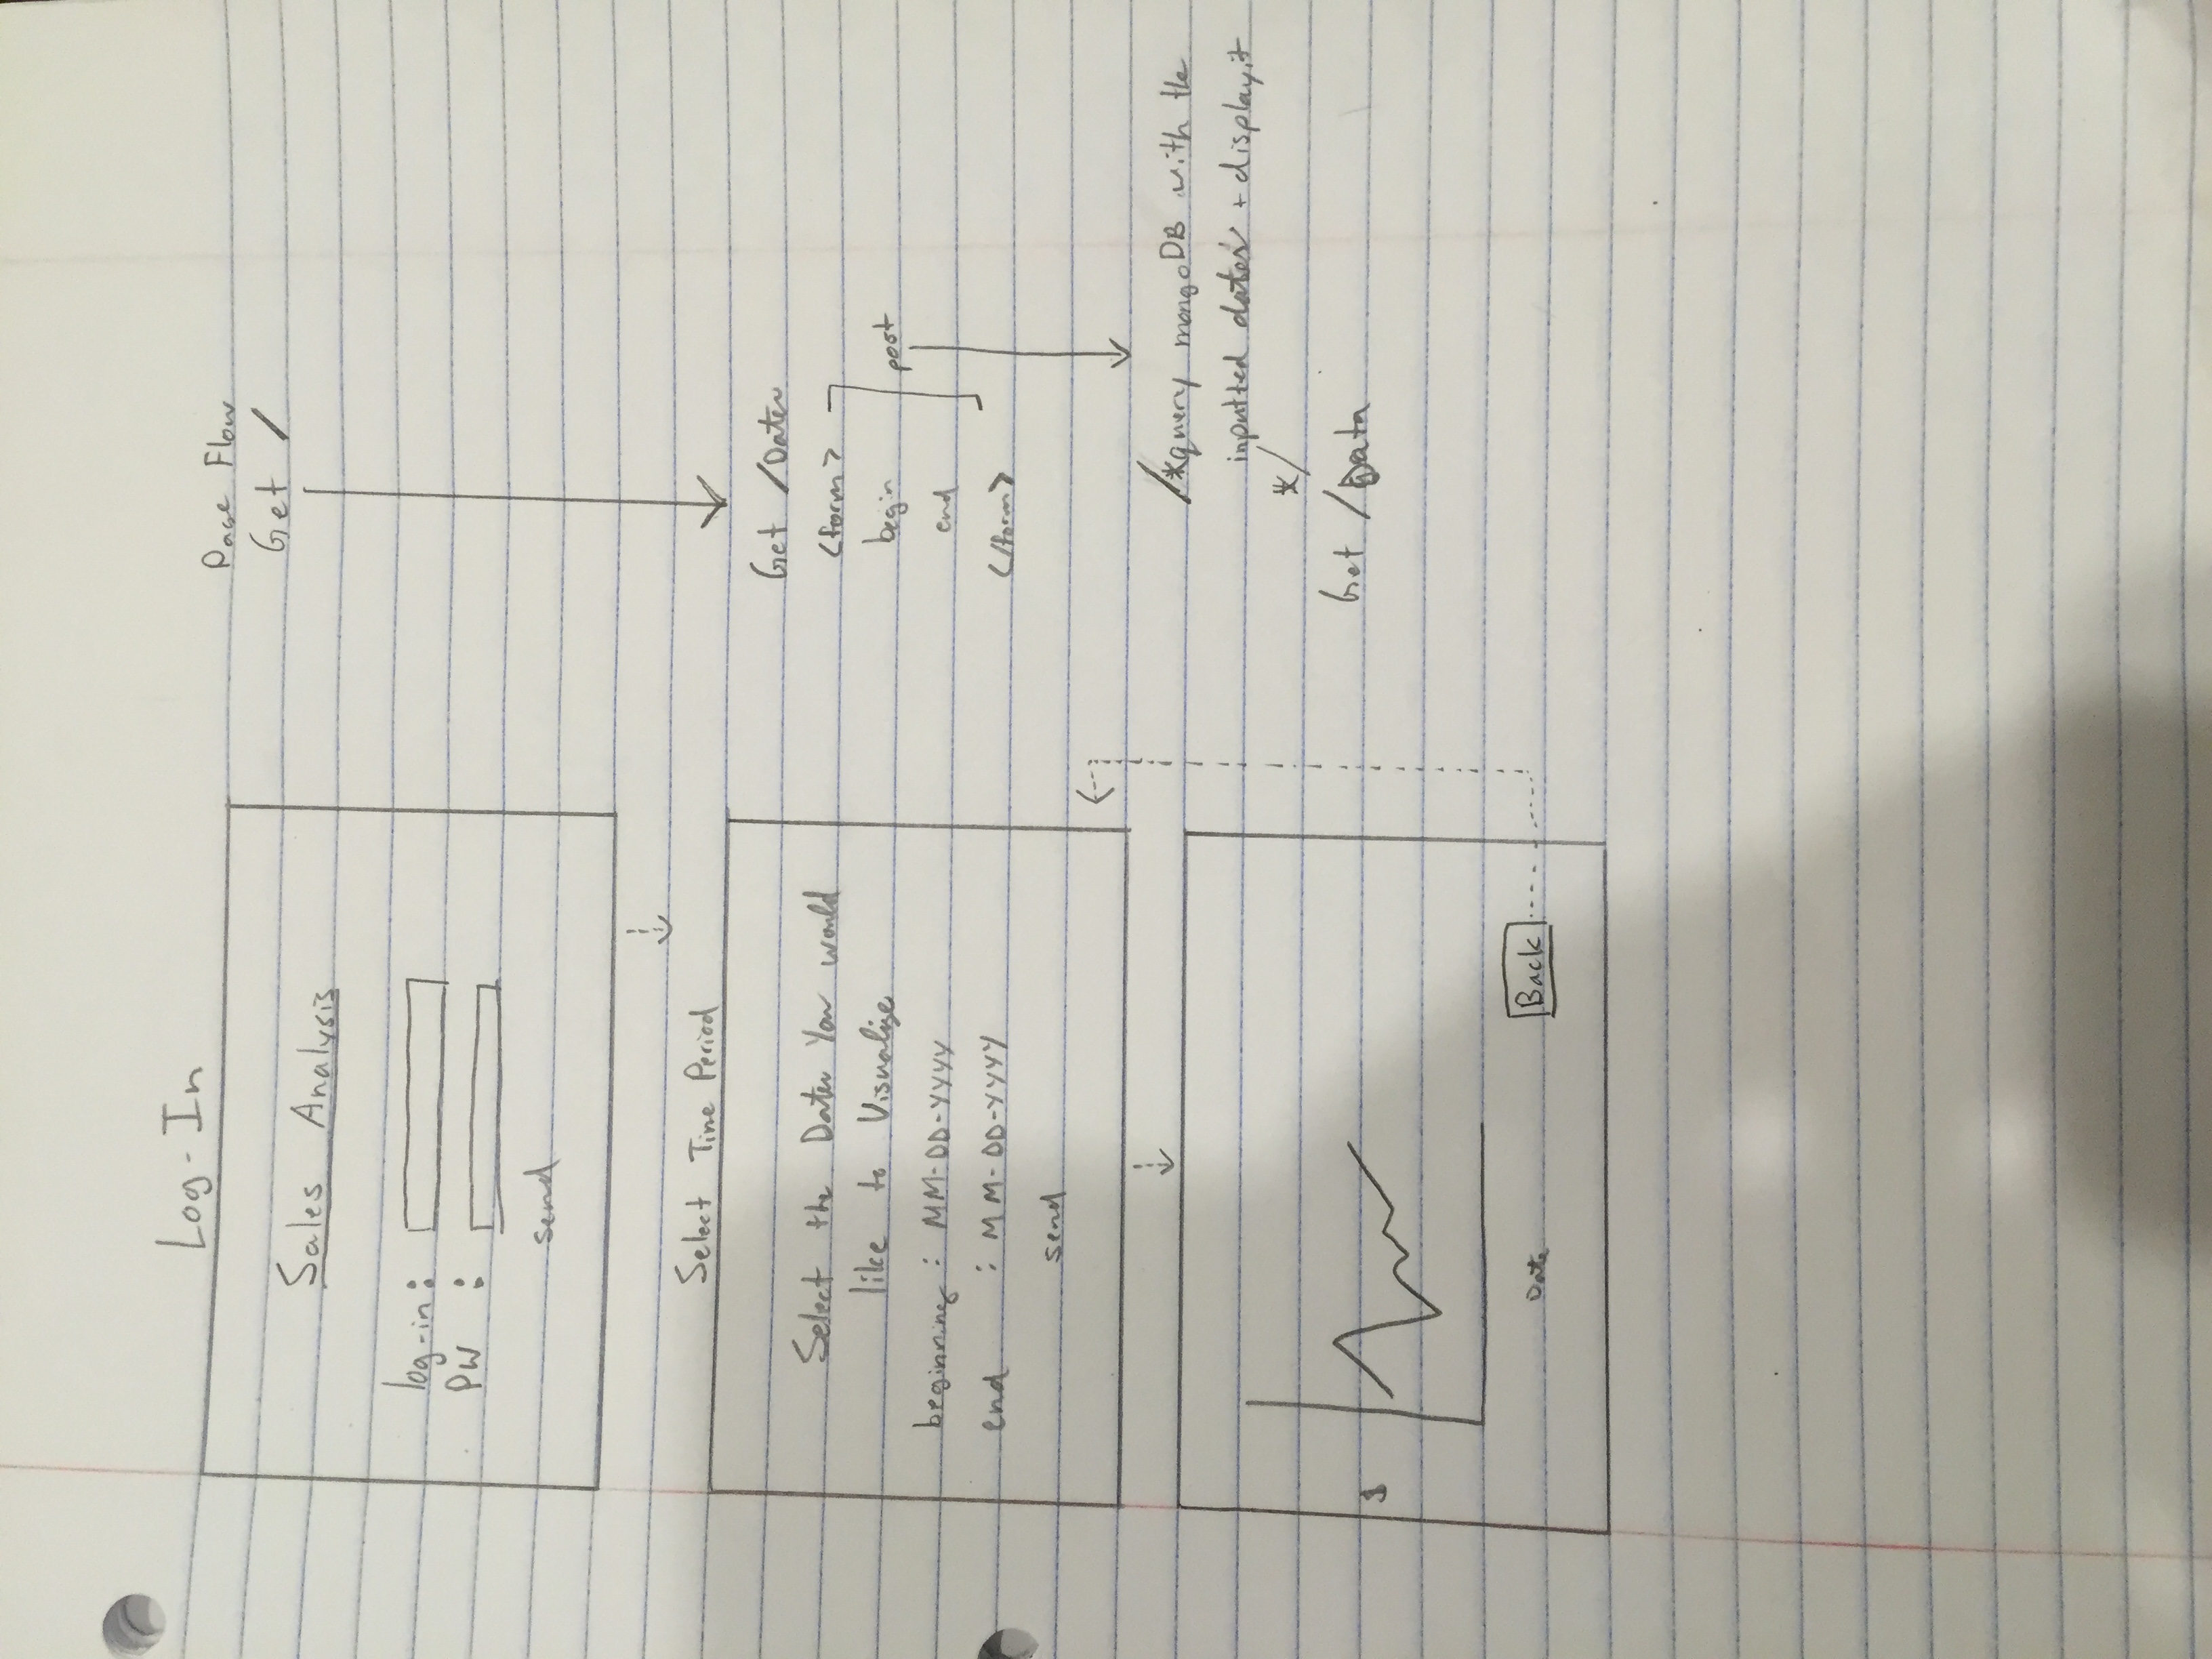 Log-In
Sales Analysis
log-in :
PW :
send
Select Time Period
Select the Dates You would
like to Visualize
beginning : MM-DD-YYYY
end : MM-DD-YYYY
send
$
Date
Back
Page Flow
Get /
Get /Dates
<form>
begin
end
</form>
post
/*query mongoDB with the
inputted dates + display it
*/
Get /Data